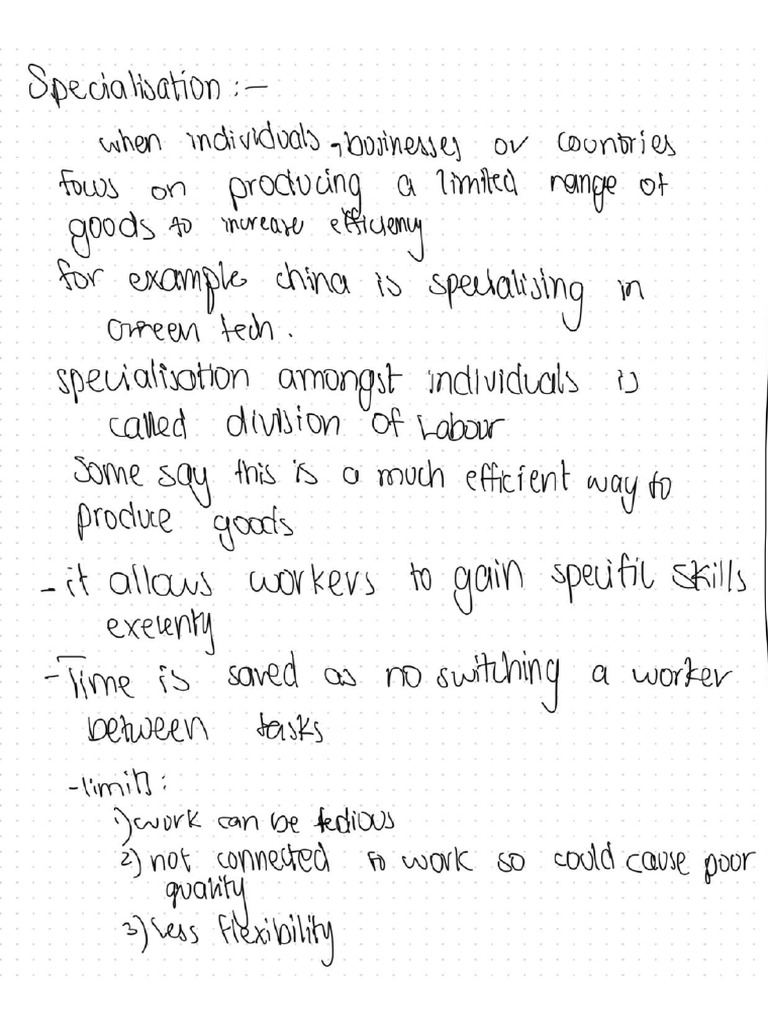 Specialisation :-
when individuals, businesses or countries
focus on producing a limited range of
goods to increase efficiency
for example china is specialising in
Green tech.
specialisation amongst individuals is
called division of Labour
Some say this is a much efficient way to
produce goods
- it allows workers to gain specific skills
exelenty
- Time is saved as no switching a worker
between tasks
- limits:
1) work can be tedious
2) not connected to work so could cause poor
quality
3) less flexibility